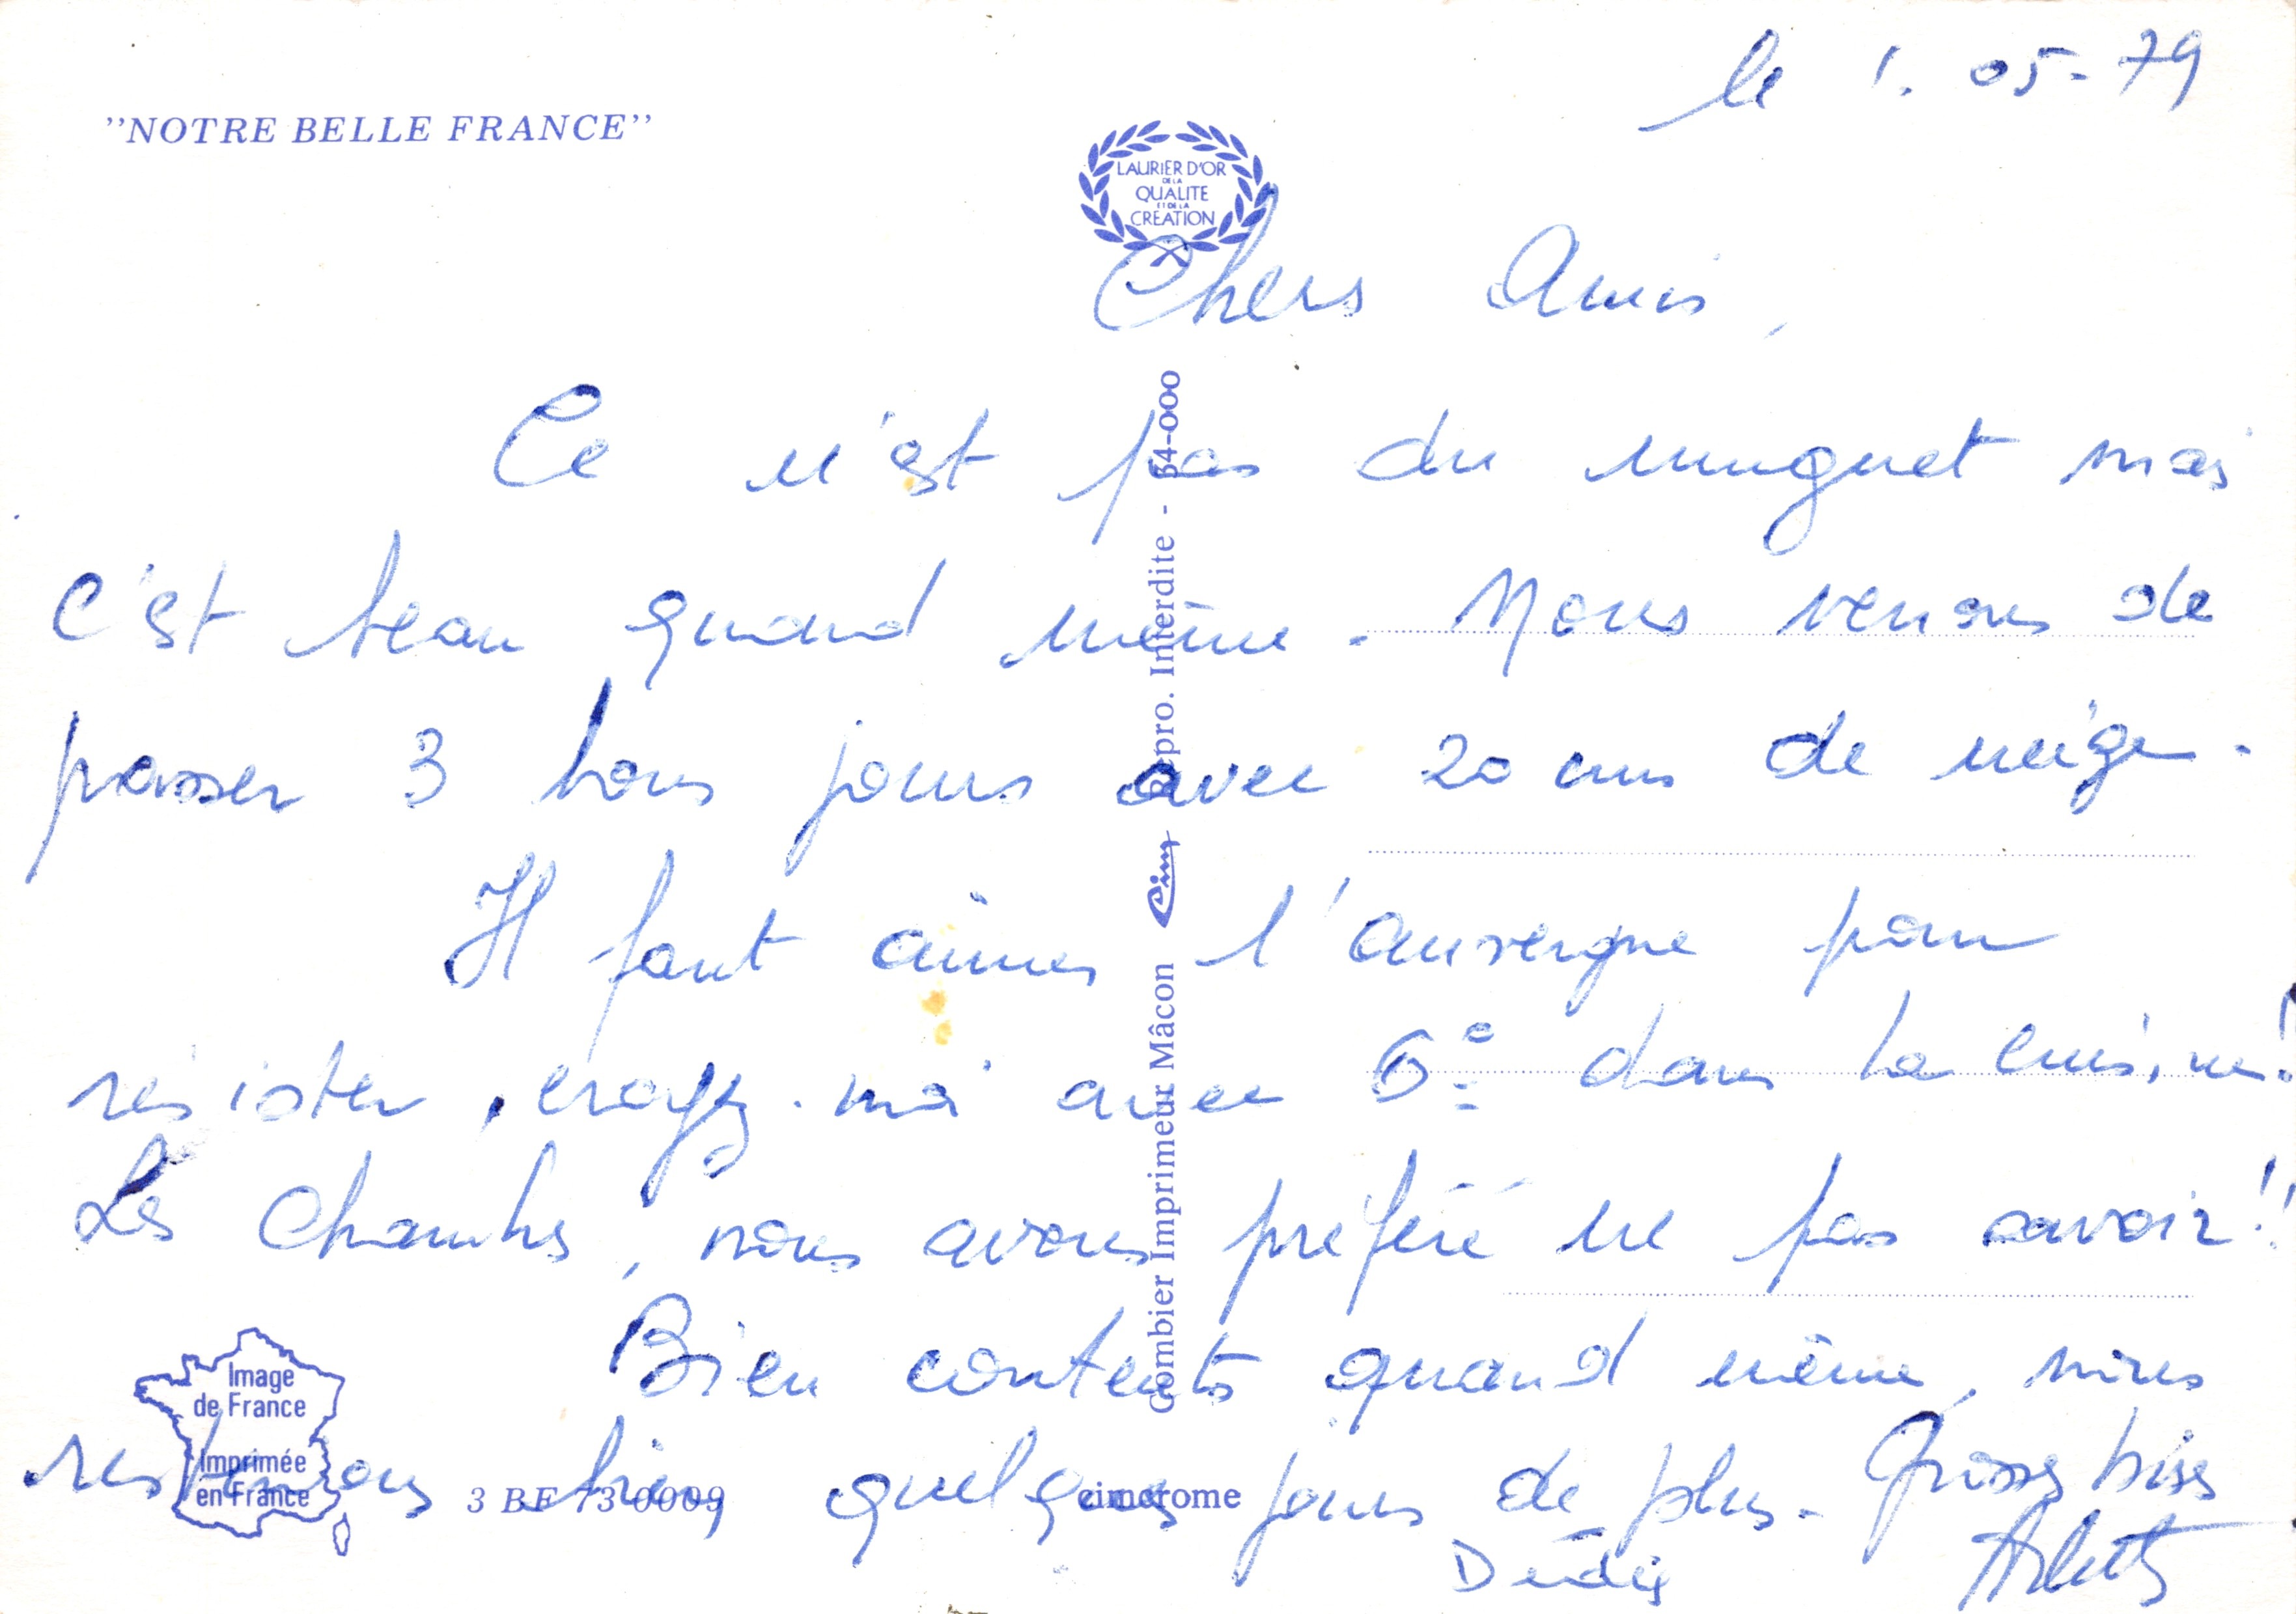 le 1. 05-79
"NOTRE BELLE FRANCE"
LAURIER D'OR
DE LA
QUALITE
ET DE LA
CREATION
Chers Amis,
Ce n'est pas du muguet mais
c'est beau quand même. Nous venons de
passer 3 bons jours avec 20 cms de neige.
Il faut aimer l'auvergne pour
résister, croyez-moi avec 6° dans la cuisine!
Les Chambres, nous avons préféré ne pas savoir!!
Bien contents quand même, nous
resterions bien quelques jours de plus. Grosses bises
Dédée Arlette
Combier Imprimeur Mâcon Cim Repro. Interdite - 54-000
Image
de France
Imprimée
en France
3 BF 73 0009
cimcrome